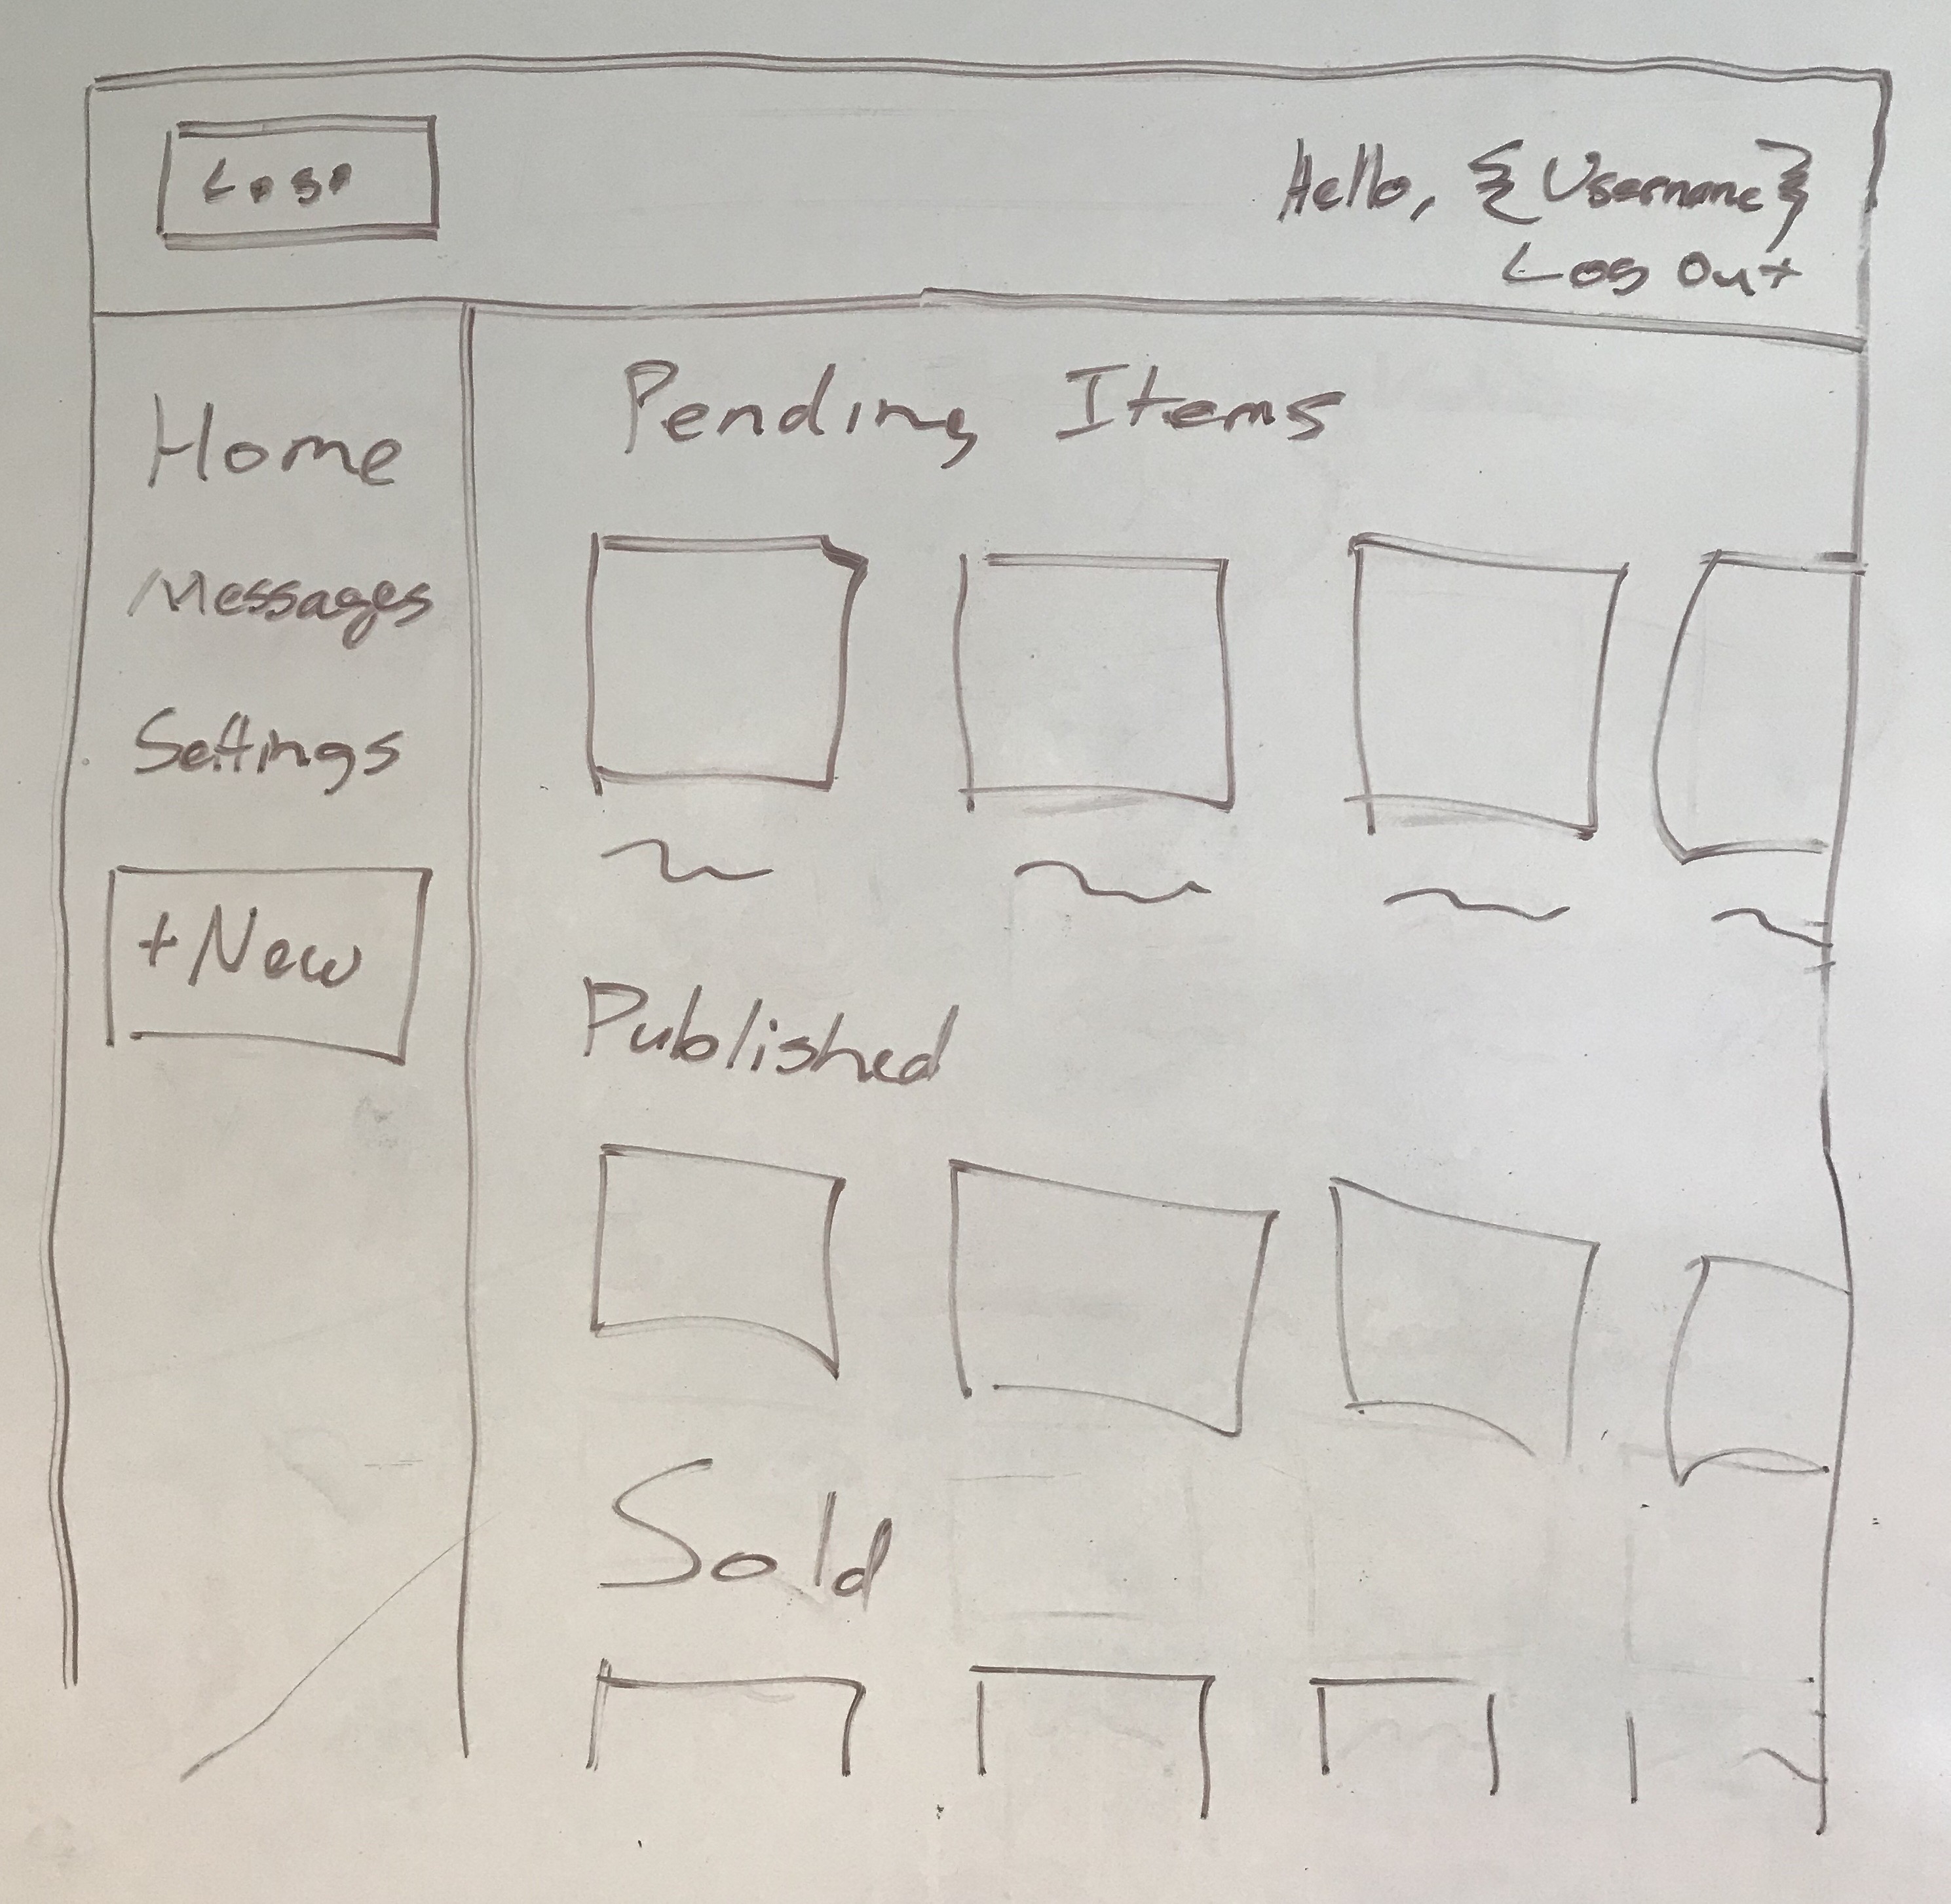 Logo
Hello, {Username}
Log Out
Home
Messages
Settings
+New
Pending Items
Published
Sold